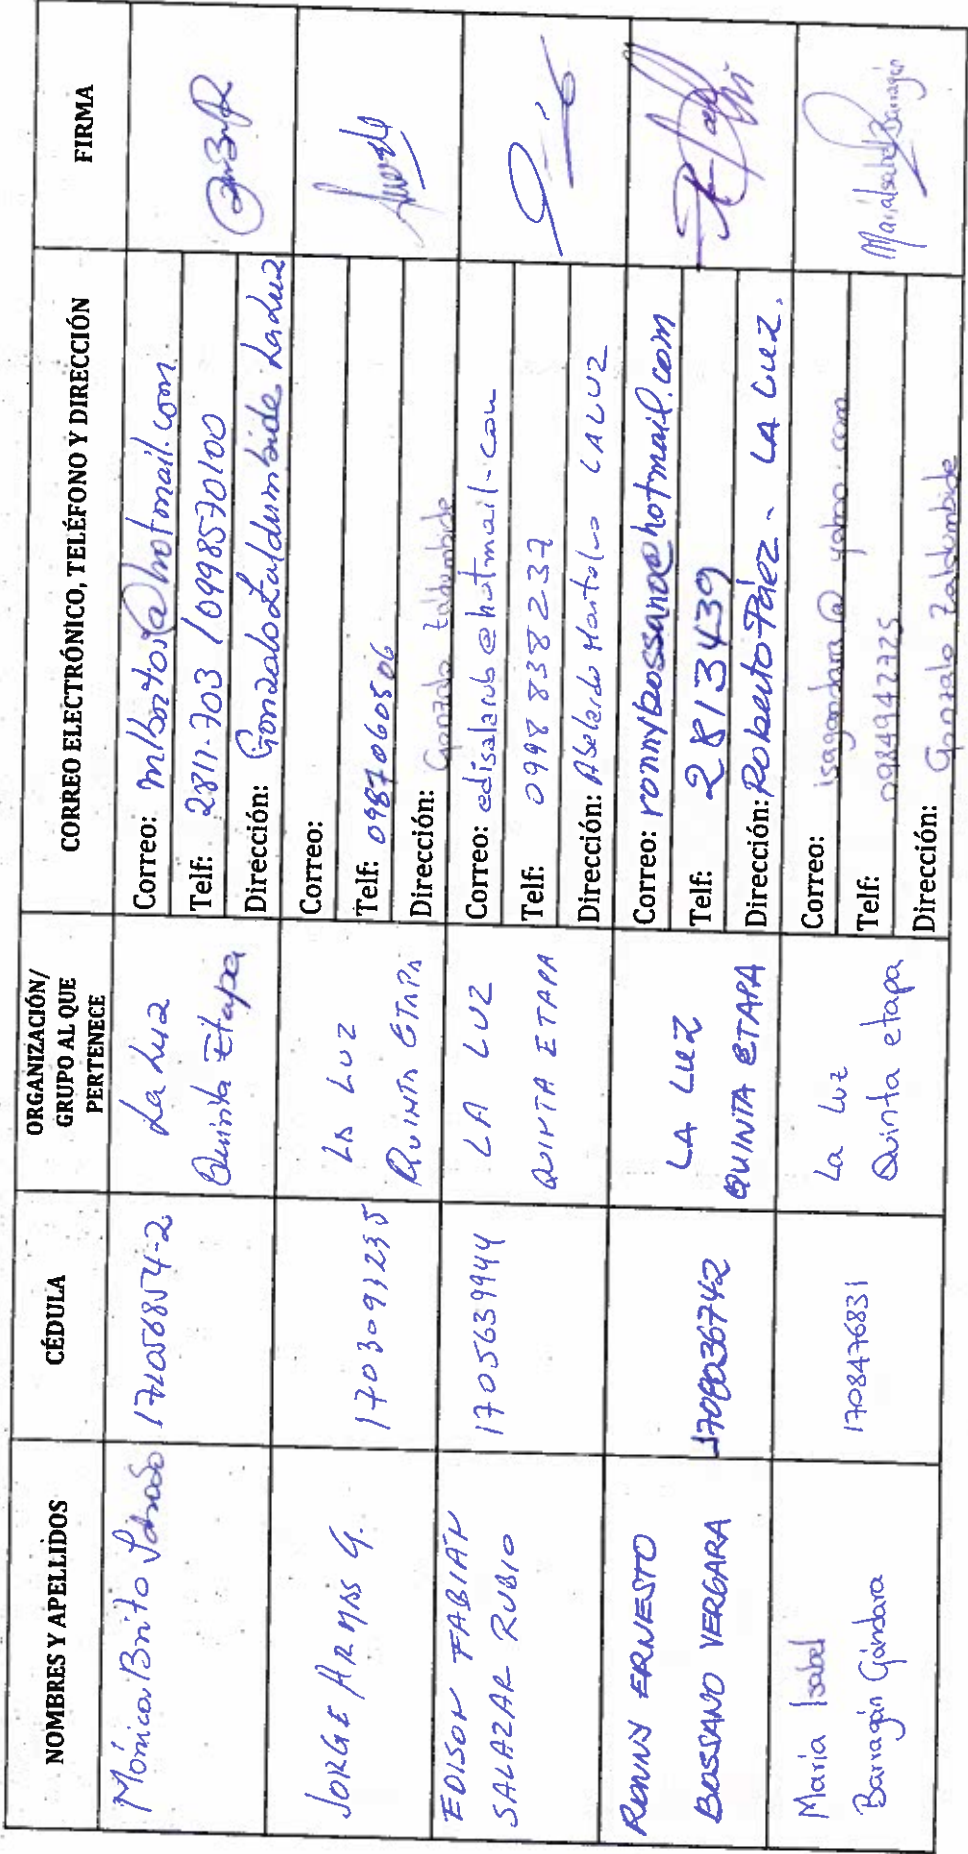 NOMBRES Y APELLIDOS
CÉDULA
ORGANIZACIÓN/
GRUPO AL QUE
PERTENECE
CORREO ELECTRÓNICO, TELÉFONO Y DIRECCIÓN
FIRMA
Mónica Brito
La Luz
Quinta Etapa
Correo: @hotmail.com.
Telf: 2811-703 / 0998570100
Dirección: Gonzalo Zaldumbide La Luz
JORGE ARMAS G.
LA LUZ
QUINTA ETAPA
Correo:
Telf: 0987060506
Dirección: Gonzalo
EDISON FABIÁN
SALAZAR RUBIO
1705639944
LA LUZ
QUINTA ETAPA
Correo: edisalarub@hotmail.com
Telf: 0998838237
Dirección: Abelardo LA LUZ
RONNY ERNESTO
BOSSANO VERGARA
LA LUZ
QUINTA ETAPA
Correo: ronnybossano@hotmail.com
Telf: 2813439
Dirección: Roberto Páez - LA LUZ.
María Isabel
Barragán Gándara
1708476831
La Luz
Quinta etapa
Correo: isagandara@yahoo.com
Telf: 0984942725
Dirección: Gonzalo Zaldumbide
María Isabel Barragán